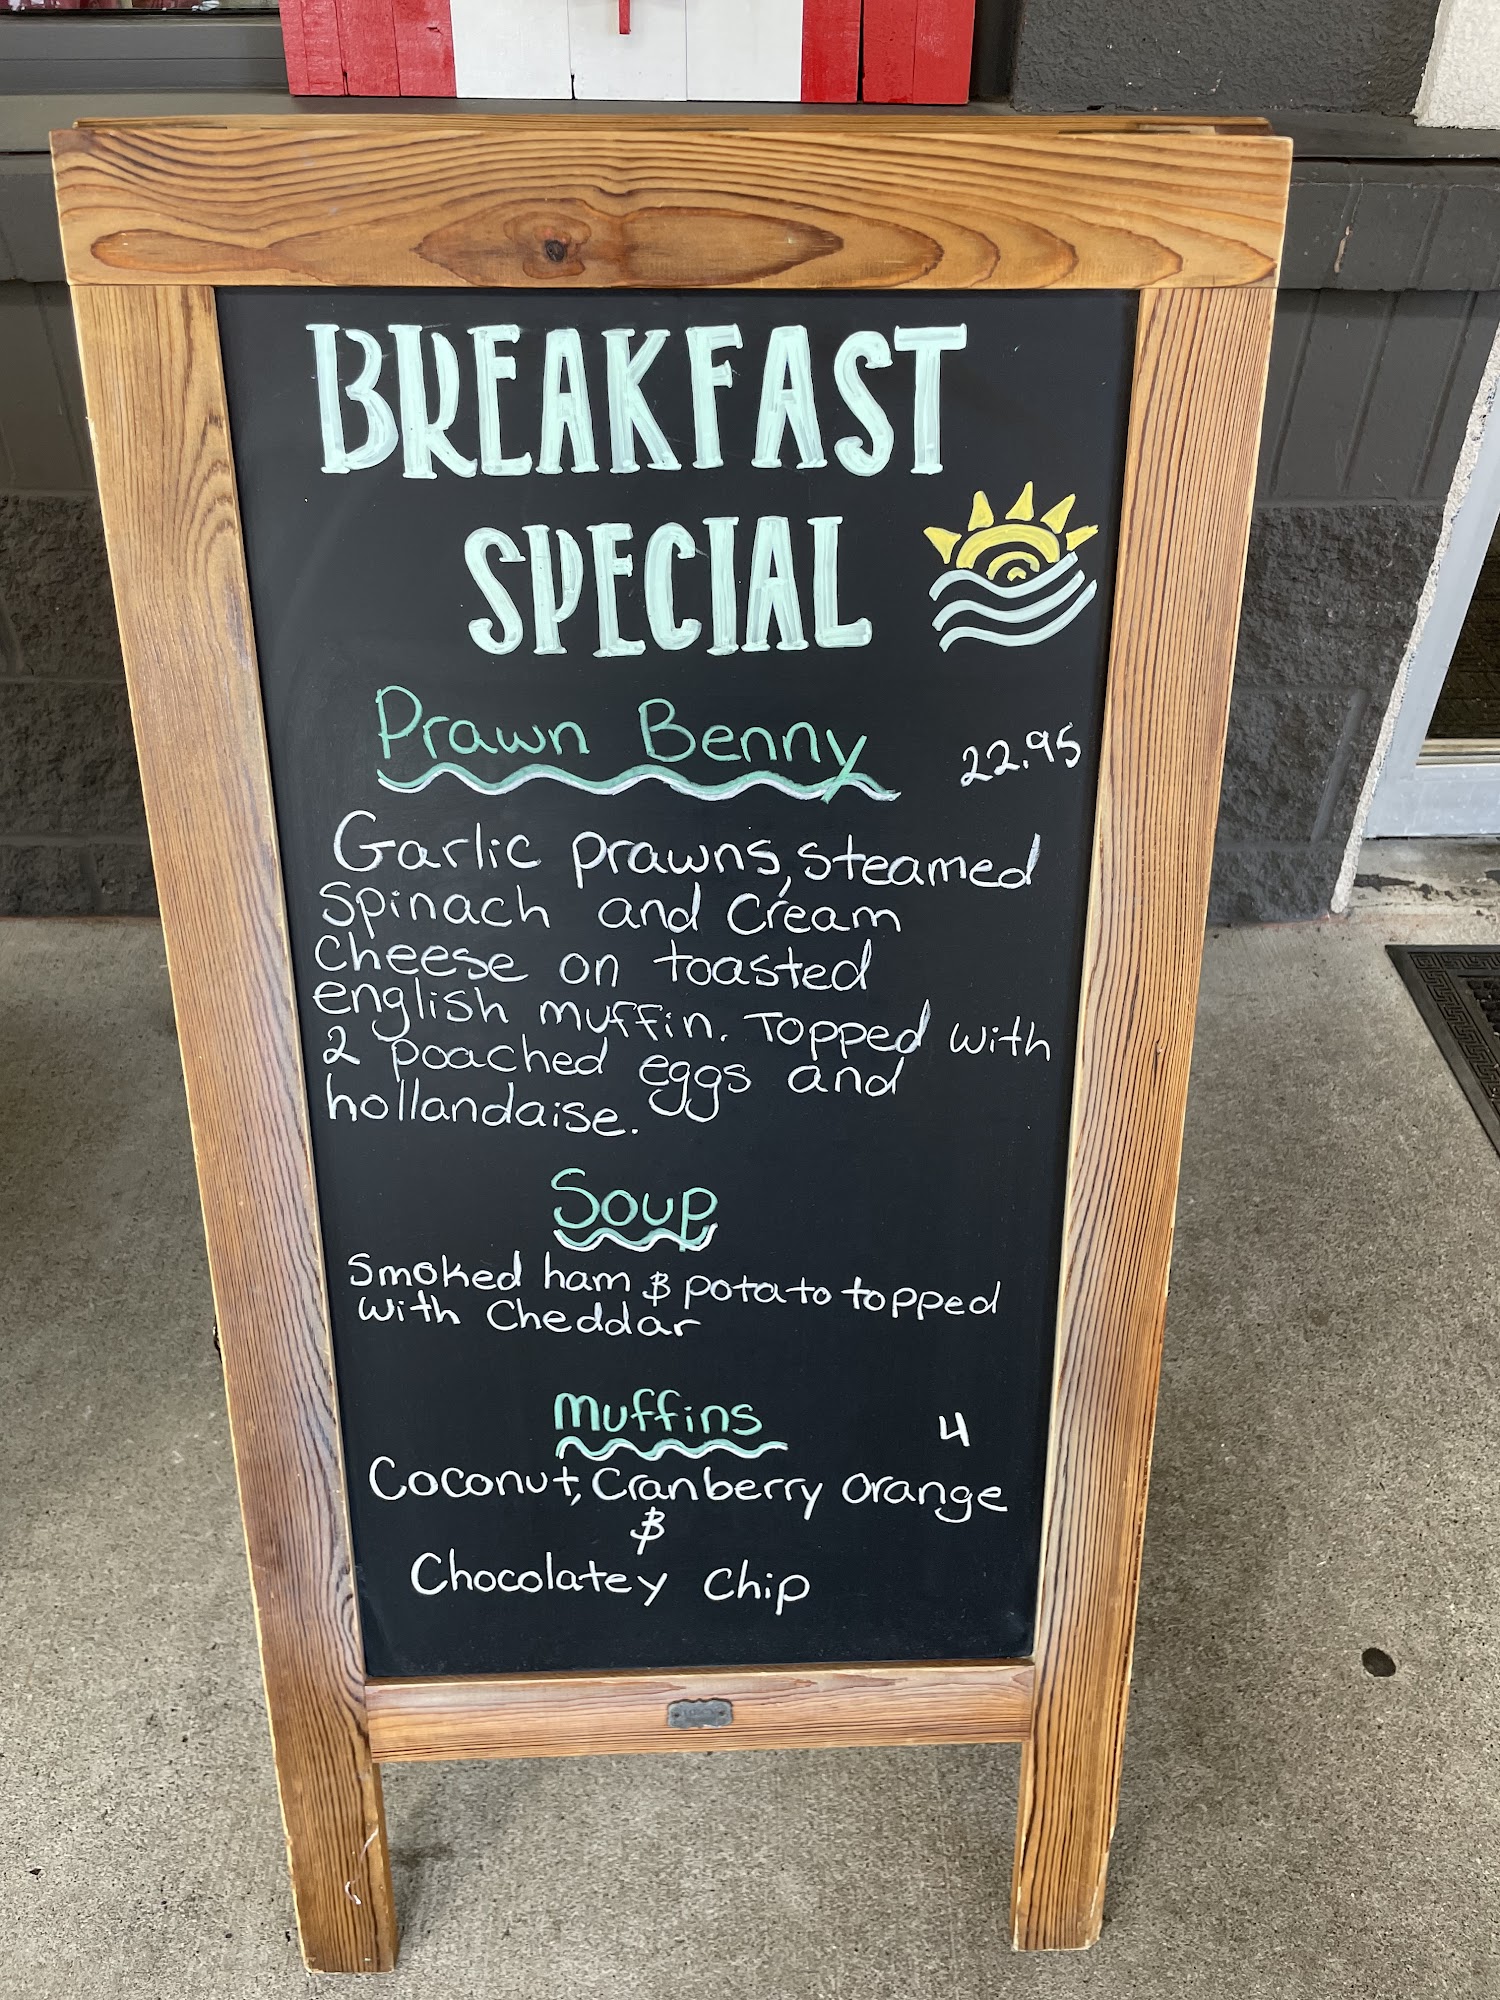 BREAKFAST
SPECIAL
Prawn Benny 22.95
Garlic prawns, steamed
spinach and cream
cheese on toasted
english muffin. Topped with
2 poached eggs and
hollandaise.
Soup
Smoked ham & potato topped
with Cheddar
Muffins 4
Coconut, Cranberry Orange
&
Chocolatey Chip